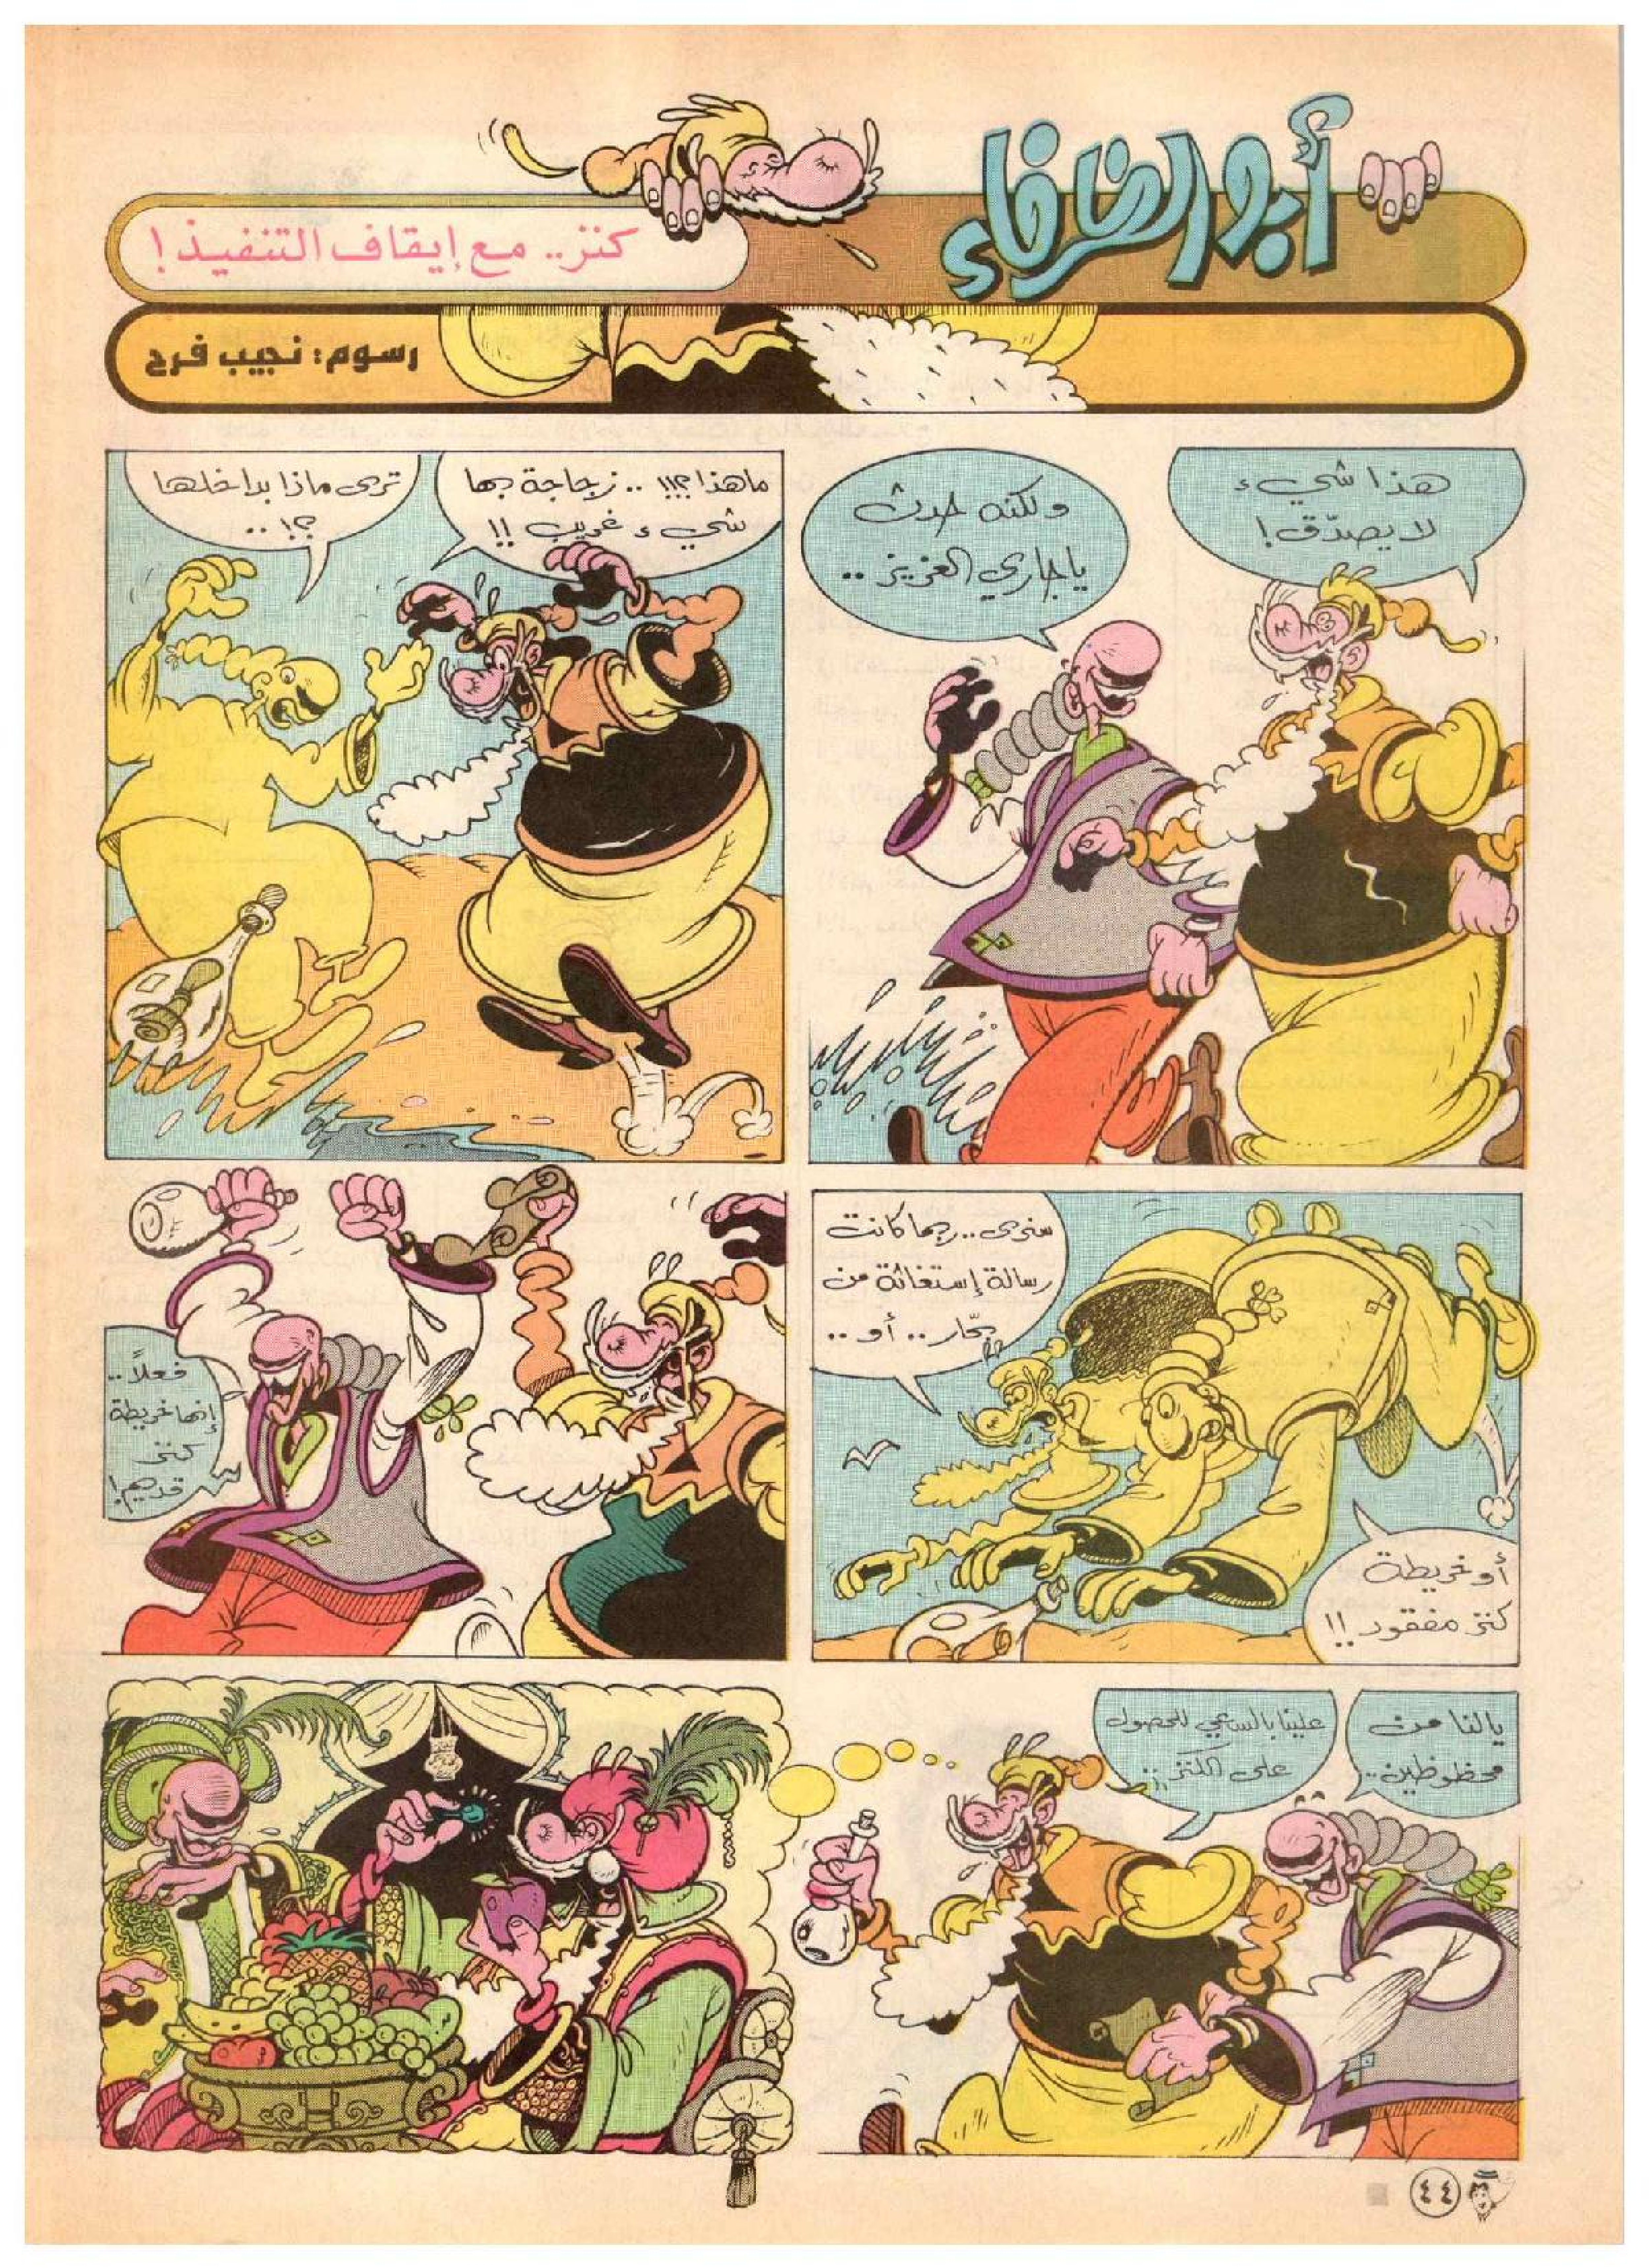 أبو الظرفاء
كنز.. مع إيقاف التنفيذ!
رسوم: نجيب فرح
هذا شيء
لا يصدّق!
ولكنه حدث
يا جاري العزيز..
ما هذا؟!! .. زجاجة بها
شيء غريب!!
ترى ماذا بداخلها
؟!..
سنرى.. ربما كانت
رسالة إستغاثة من
بحّار.. أو..
أو خريطة
كنز مفقود!!
فعلاً..
إنها خريطة
كنز
قديم!
يالنا من
محظوظين..
علينا بالسعي للحصول
على الكنز..
٤٤